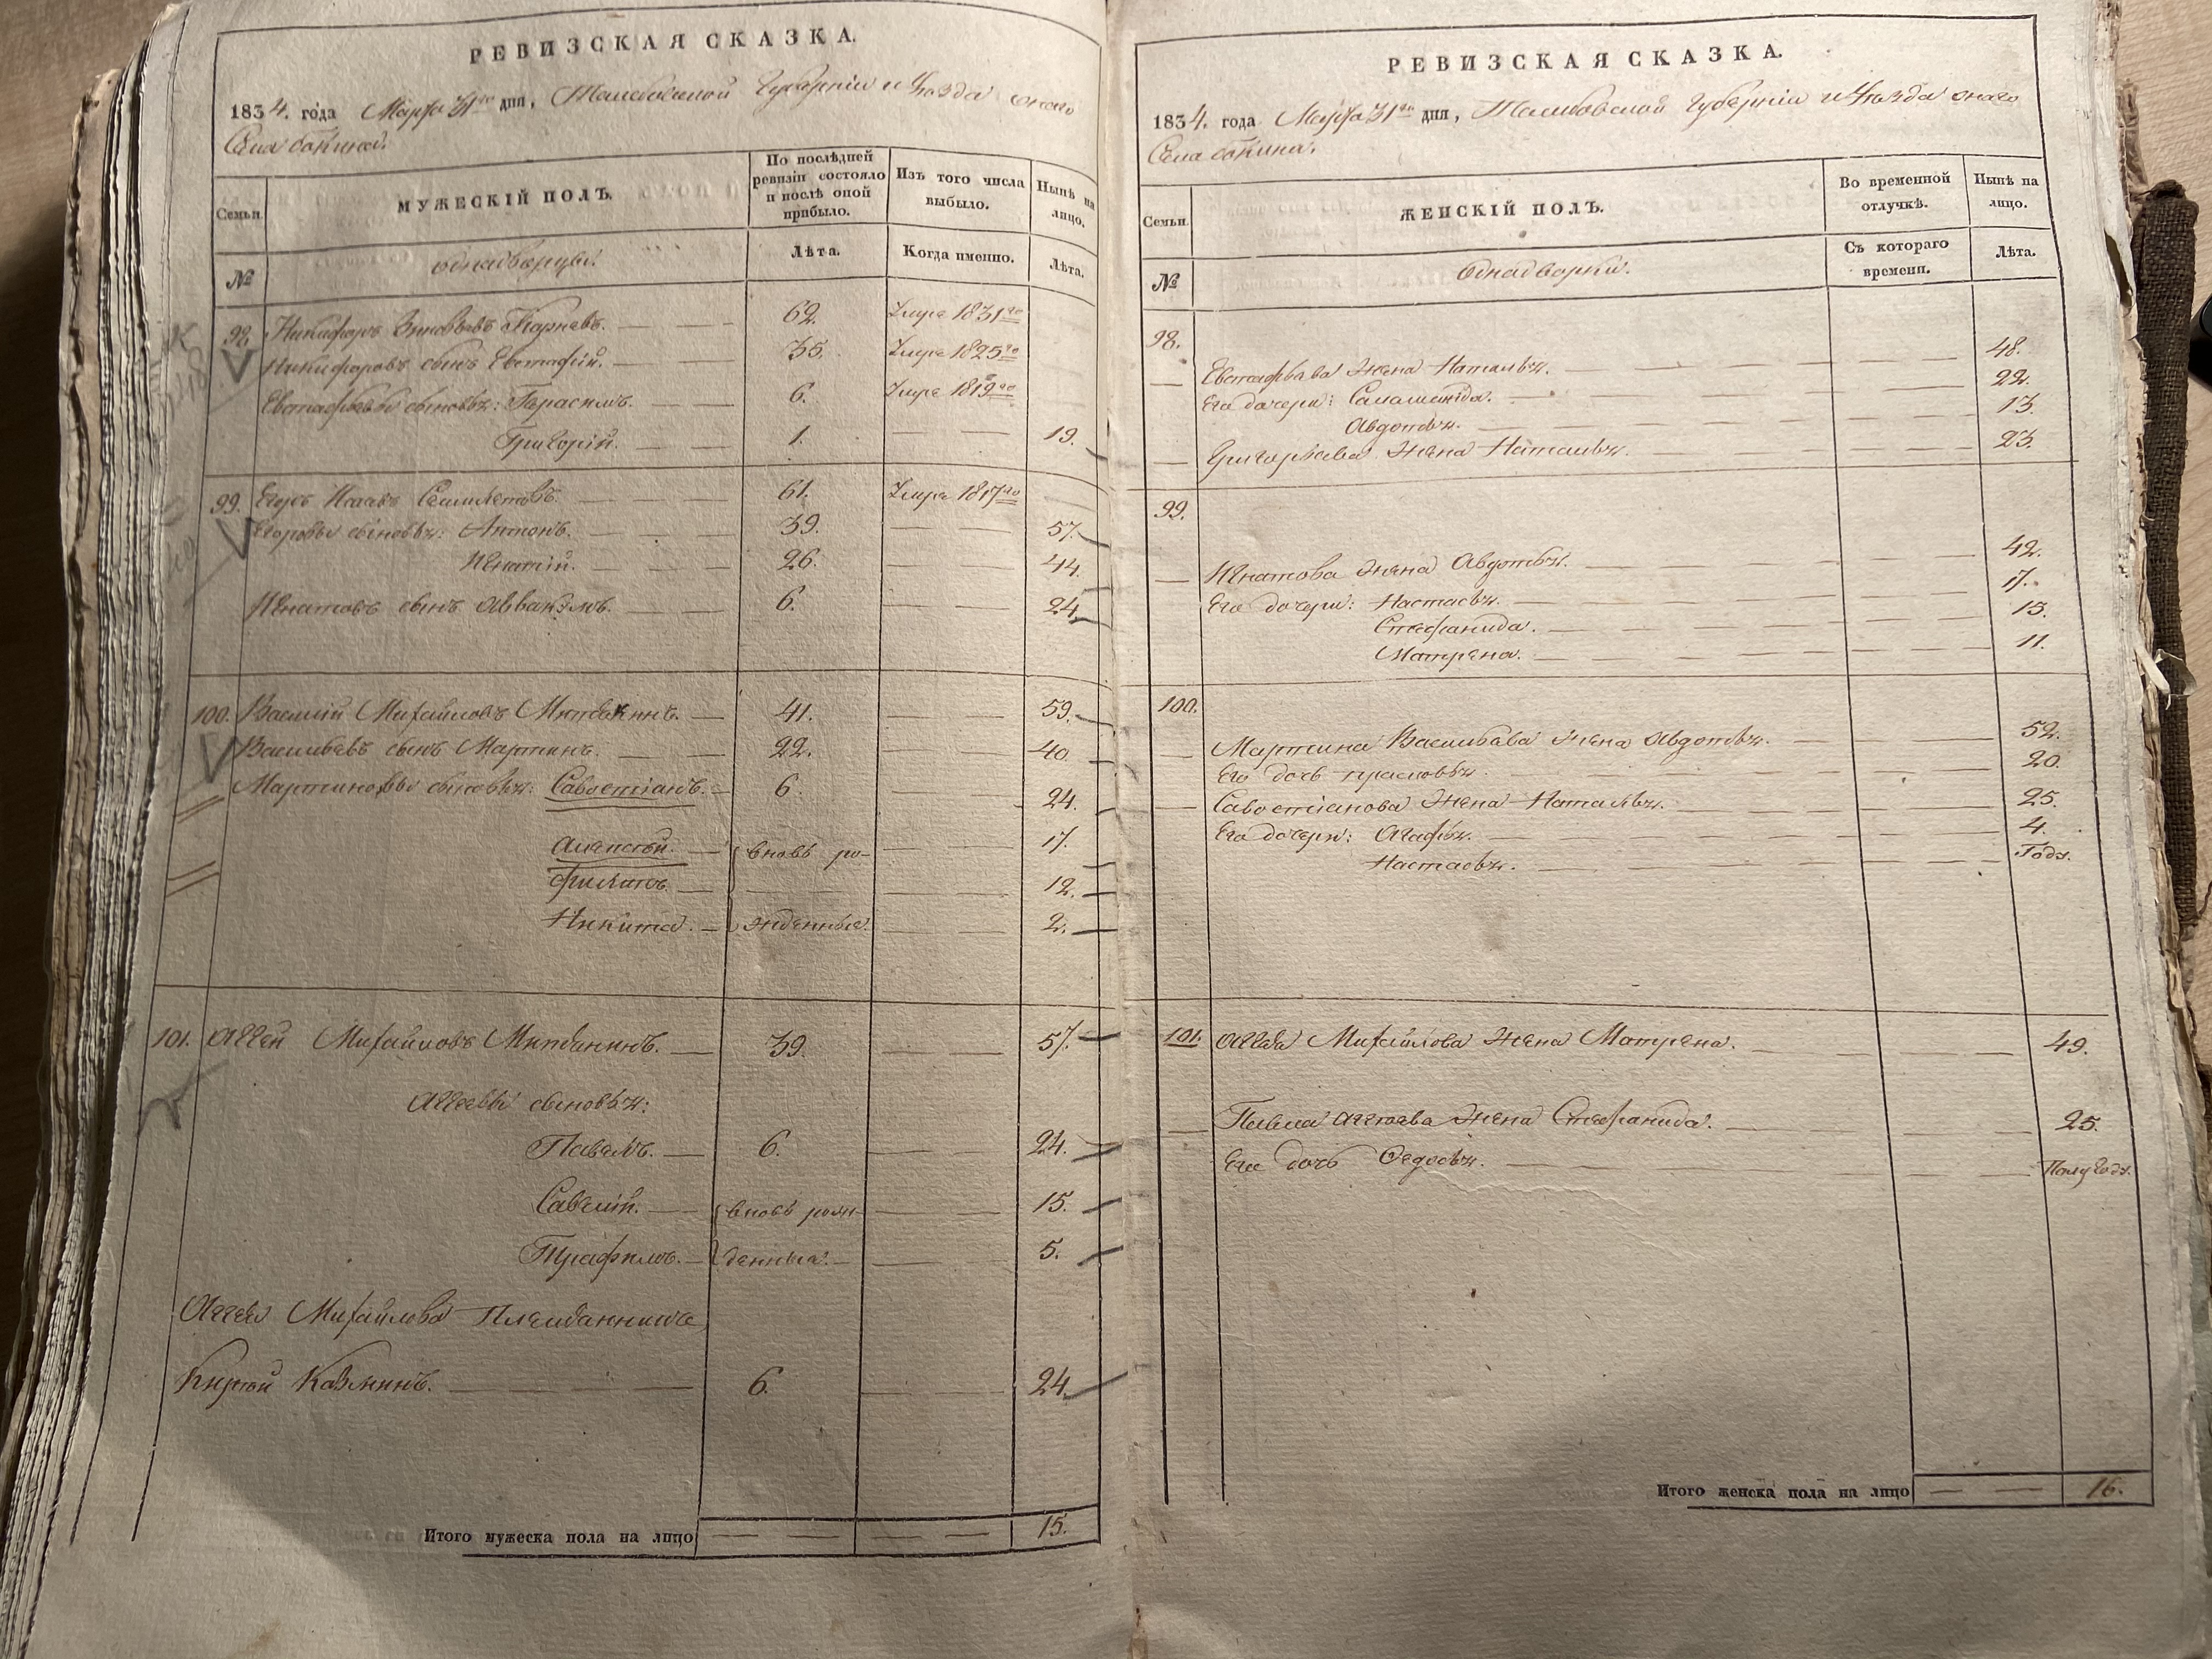 РЕВИЗСКАЯ СКАЗКА.
1834. года Марта 31го дня, Тамбовской Губернiи и Уѣзда онаго
Села бокина.
Семьи.
МУЖЕСКIЙ ПОЛЪ.
По послѣдней ревизiи состояло и послѣ оной прибыло.
Изъ того числа выбыло.
Нынѣ на лицо.
№
однадворцы.
Лѣта.
Когда именно.
Лѣта.
98. Никифоръ Зиновьевъ 62. Умре 1831го
Никифоровъ сынъ Евстафiй. 35. Умре 1825го
Евстафьевы сыновья: Герасимъ. 6. Умре 1819го
Григорiй. 1. 19.
99. Егоръ Исаевъ 61. Умре 1817го
Егоровы сыновья: Антонъ. 39. 57.
Игнатiй. 26. 44.
Игнатовъ сынъ Аввакумъ. 6. 24.
100. Василiй Михайловъ 41. 59.
Васильевъ сынъ Мартинъ. 22. 40.
Мартиновы сыновья: Савостiанъ. 6. 24.
Алексѣй. вновь ро- 17.
Филипъ. 12.
Никита. жденныя. 2.
101. Аггей Михайловъ 39. 57.
Аггеевы сыновья:
Павелъ. 6. 24.
Савелiй. вновь рож- 15.
Трафимъ. денныя. 5.
Аггея Михайлова Племянникъ
Кирѣй Казминъ. 6. 24.
Итого мужеска пола на лицо 15.
РЕВИЗСКАЯ СКАЗКА.
1834. года Марта 31го дня, Тамбовской Губернiи и Уѣзда онаго
Села бокина.
Семьи.
ЖЕНСКIЙ ПОЛЪ.
Во временной отлучкѣ.
Нынѣ на лицо.
№
Однадворки.
Съ котораго времени.
Лѣта.
98.
Евстафьева жена Наталья. 48.
Его дочери: Саламанида. 22.
Авдотья. 13.
Григорьева жена Наталья. 23.
99.
Игнатова жена Авдотья. 42.
Его дочери: Настасья. 17.
Стефанида. 15.
Матрена. 11.
100.
Мартина Васильева жена Авдотья. 52.
Его дочь прасковья. 20.
Савостiанова жена Наталья. 25.
Его дочери: Агафья. 4.
Настасья. Году.
101. Аггея Михайлова жена Матрена. 49.
Павла Аггеева жена Стефанида. 25.
Его дочь Федосья. Полугоду.
Итого женска пола на лицо 16.